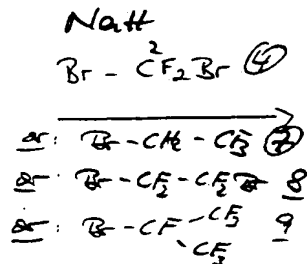 NaH
Br - CF₂Br ④
2
or: Br - CH₂ - CF₃ ⑦
or: Br - CF₂ - CF₂Br 8
or: Br - CF - CF₃ 9
CF₃